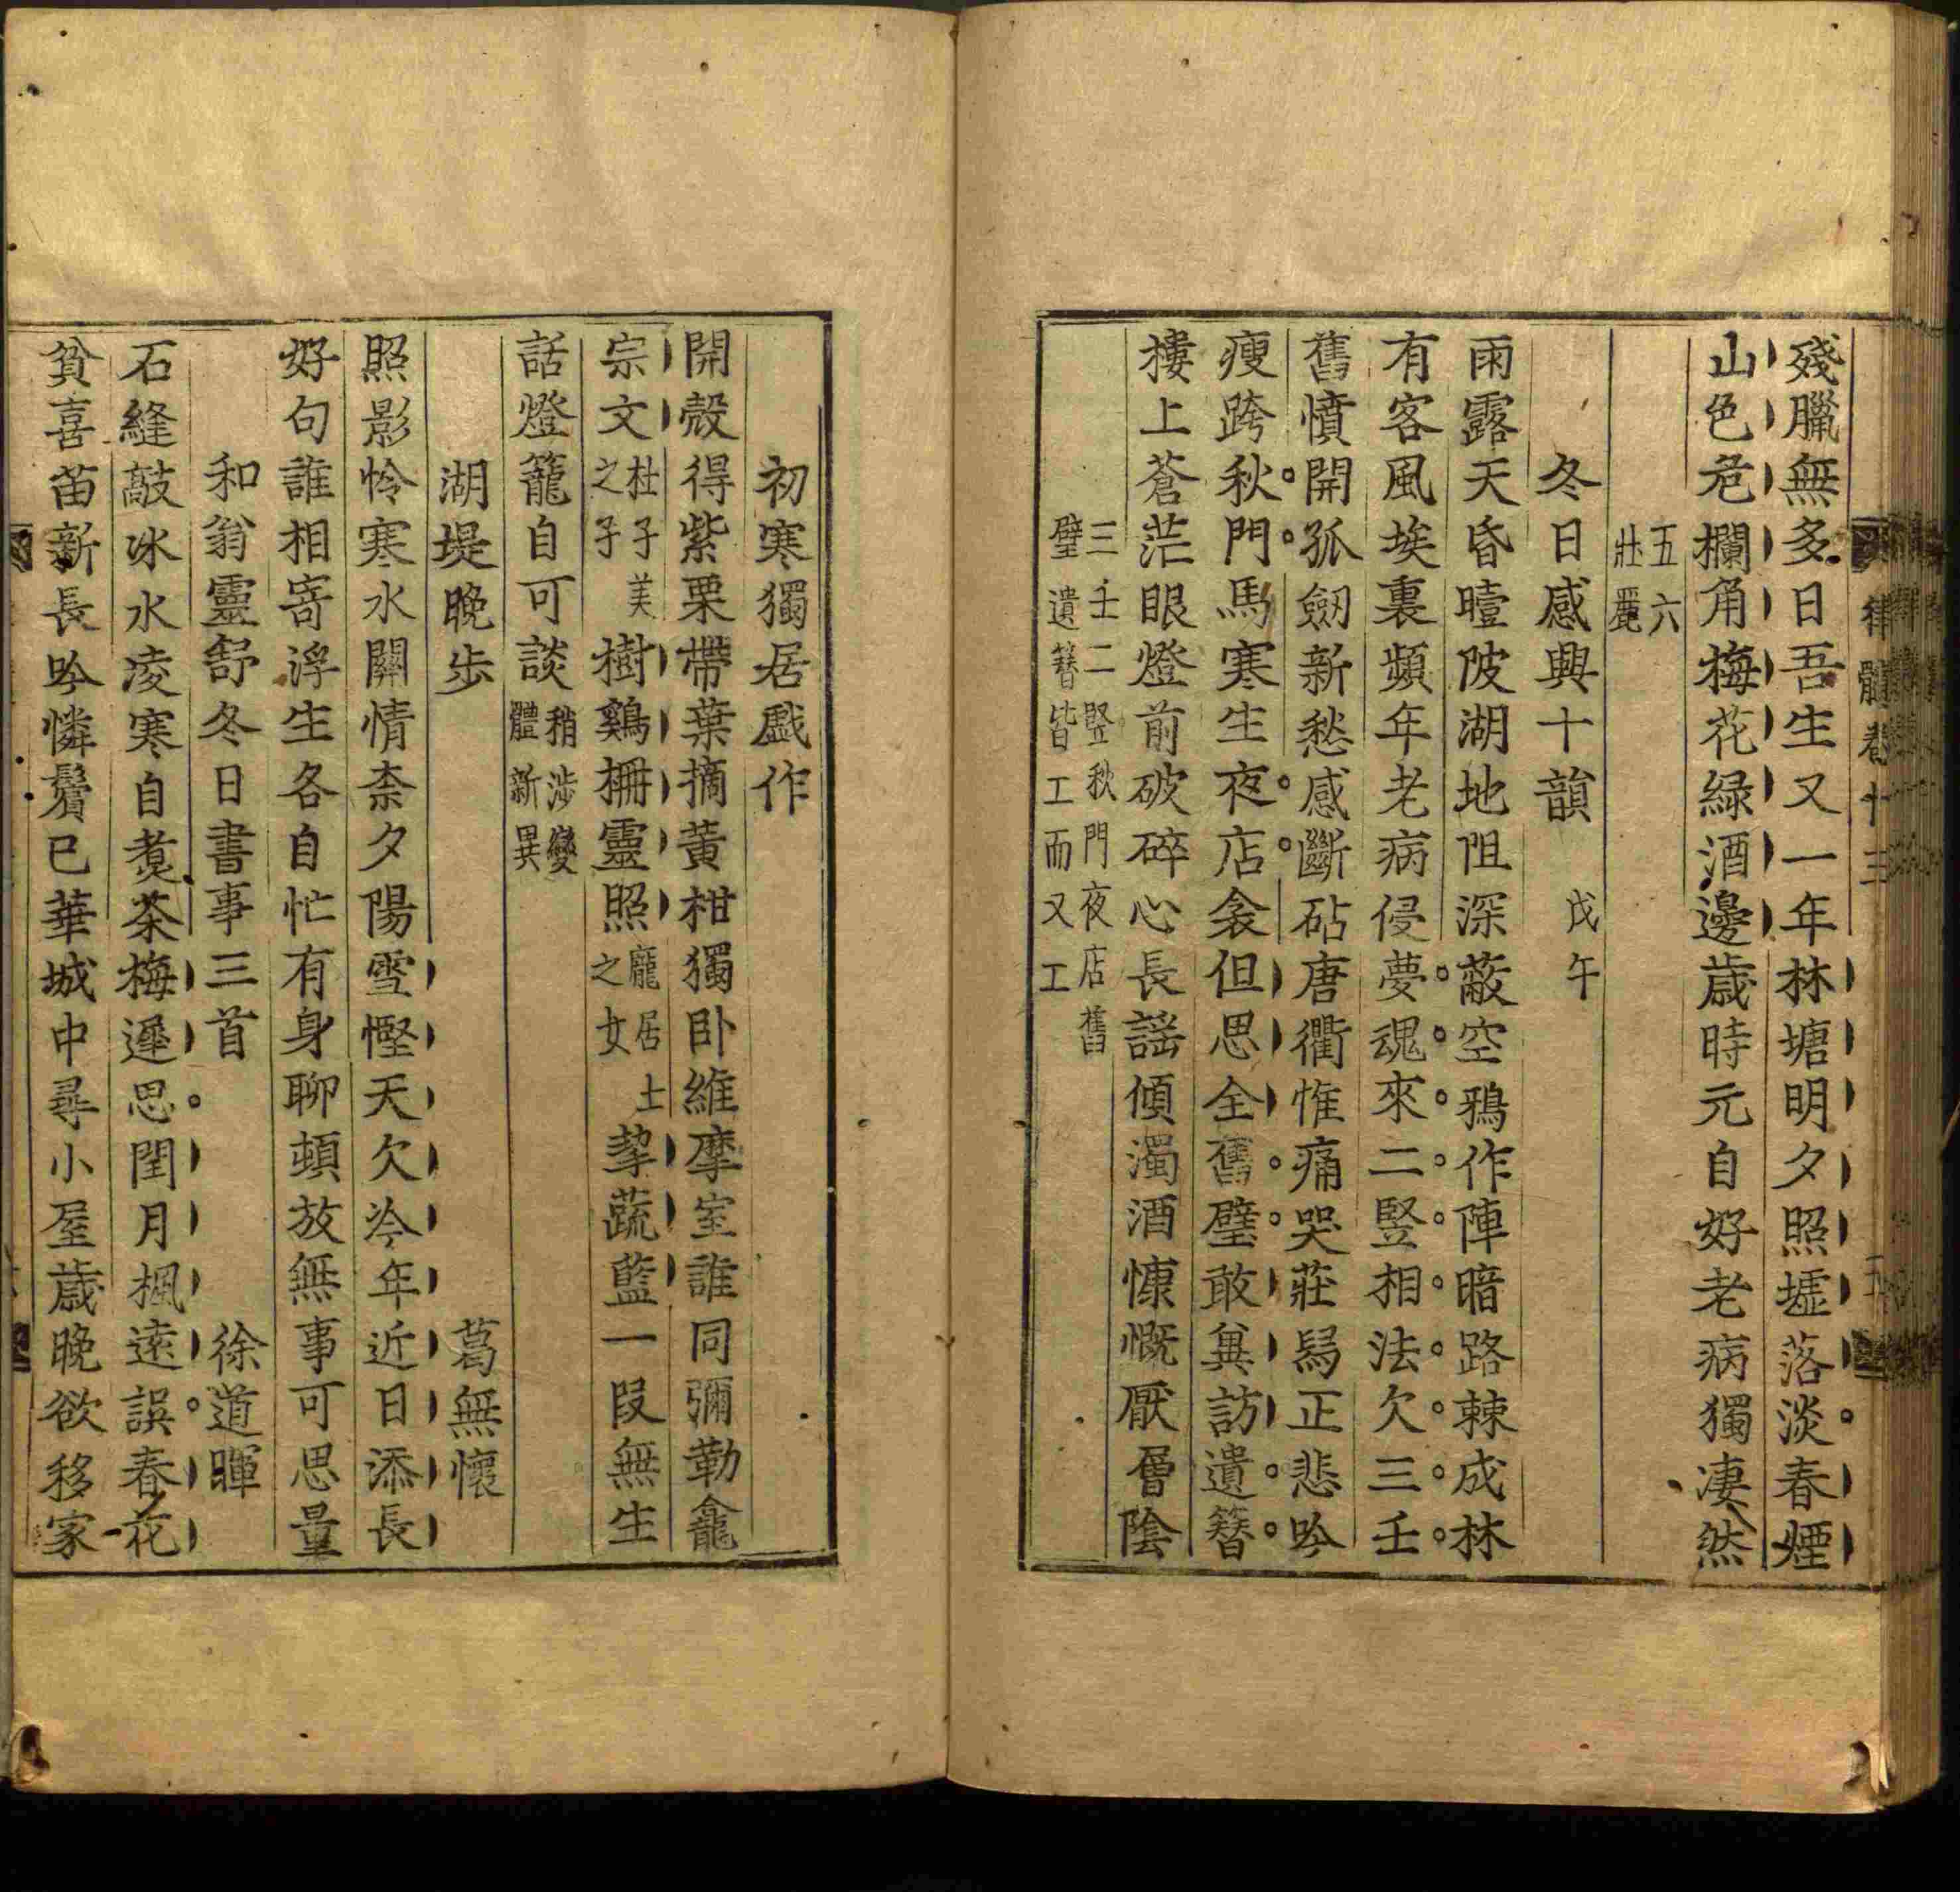 律髓卷十三
殘臘無多日吾生又一年林塘明夕照墟落淡春煙
山色危欄角梅花綠酒邊歲時元自好老病獨凄然
五六
壯麗
冬日感興十韻 戊午
雨露天昏曀陂湖地阻深蔽空鴉作陣暗路棘成林
有客風埃裏頻年老病侵夢魂來二竪相法欠三壬
舊憤開孤劒新愁感斷砧唐衢惟痛哭莊舄正悲吟
瘦跨秋門馬寒生夜店衾但思全舊璧敢冀訪遺簪
樓上蒼茫眼燈前破碎心長謡傾濁酒慷慨厭層陰
三壬二竪秋門夜店舊
璧遺簪皆工而又工
初寒獨居戲作
開殻得紫栗帶葉摘黃柑獨卧維摩室誰同彌勒龕
宗文杜子美之子樹鷄柵靈照龐居士之女挈蔬籃一段無生
話燈籠自可談稍涉變體新異
湖堤晚步 葛無懷
照影怜寒水關情柰夕陽雪慳天欠冷年近日添長
好句誰相寄浮生各自忙有身聊頓放無事可思量
和翁靈舒冬日書事三首 徐道暉
石縫敲冰水凌寒自煑茶梅遲思閏月楓遠誤春花
貧喜苗新長吟憐鬢已華城中尋小屋歲晚欲移家